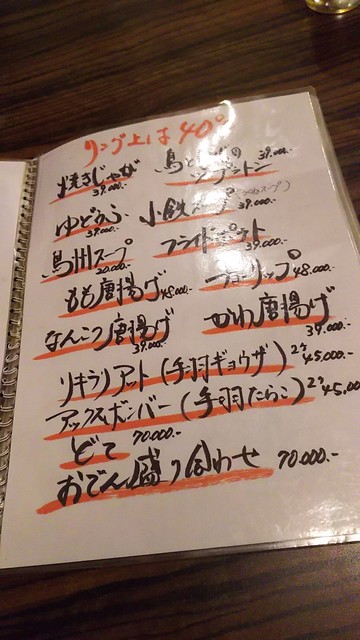 リング上は40°
焼きじゃが 39.000.-
鳥と 39.000.-
ゆどうふ 39.000.-
小鉄スープ 39.000.-
鳥州スープ 20.000.-
フライドポテト 39.000.-
もも唐揚げ 48.000.-
48.000.-
なんこつ唐揚げ 39.000.-
かわ唐揚げ 39.000.-
リキラリアット(手羽ギョウザ) 2ケ 45,000.-
アックスボンバー(手羽たらこ) 2ケ 45,00
どて 70.000.-
おでん盛り合わせ 70.000.-